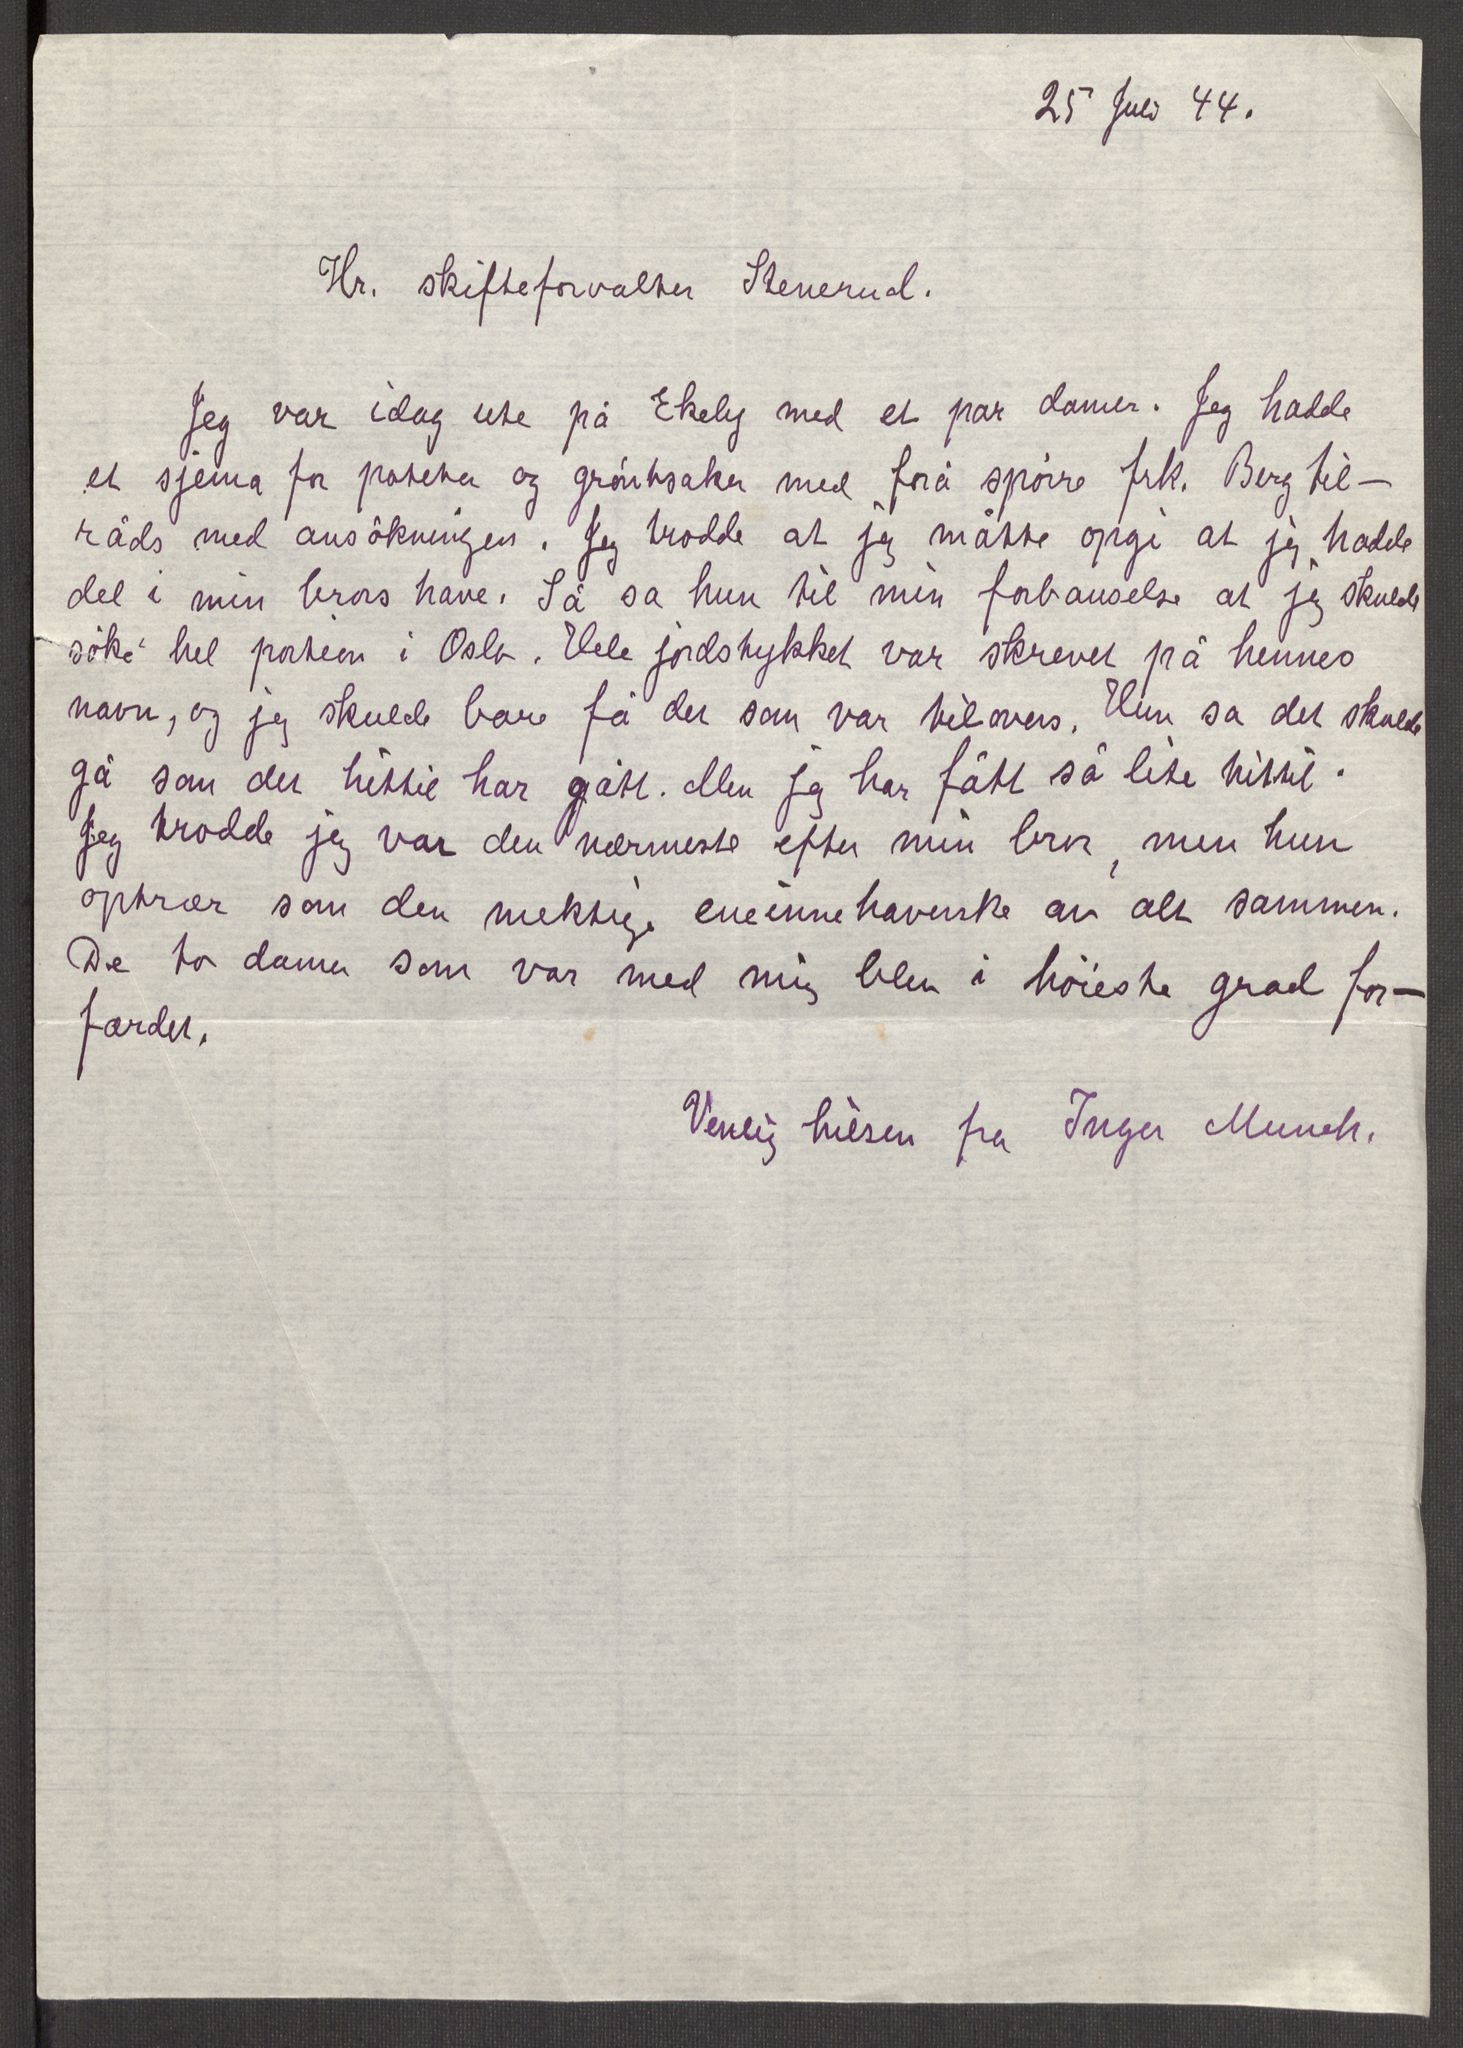 25 Juli 44.
Hr. skifteforvalter Stenerud.
Jeg var idag ute på Ekely med et par damer. Jeg hadde
et sjema for poteter og gröntsaker med forå spörre frk. Berg til-
råds med ansökningen. Jeg trodde at jeg måtte opgi at jeg hadde
del i min brors have. Så sa hun til min forbauselse at jeg skulde
söke hel portion i Oslo. Hele jordstykket var skrevet på hennes
navn, og jeg skulde bare få det som var tilovers. Hun sa det skulde
gå som det hittil har gått. Men jeg har fått så lite hittil.
Jeg trodde jeg var den nærmeste efter min bror, men hun
optrær som den mektige eneinnehaverske av alt sammen.
De to damer som var med mig blev i höieste grad for-
færdet.
Venlig hilsen fra Inger Munch.